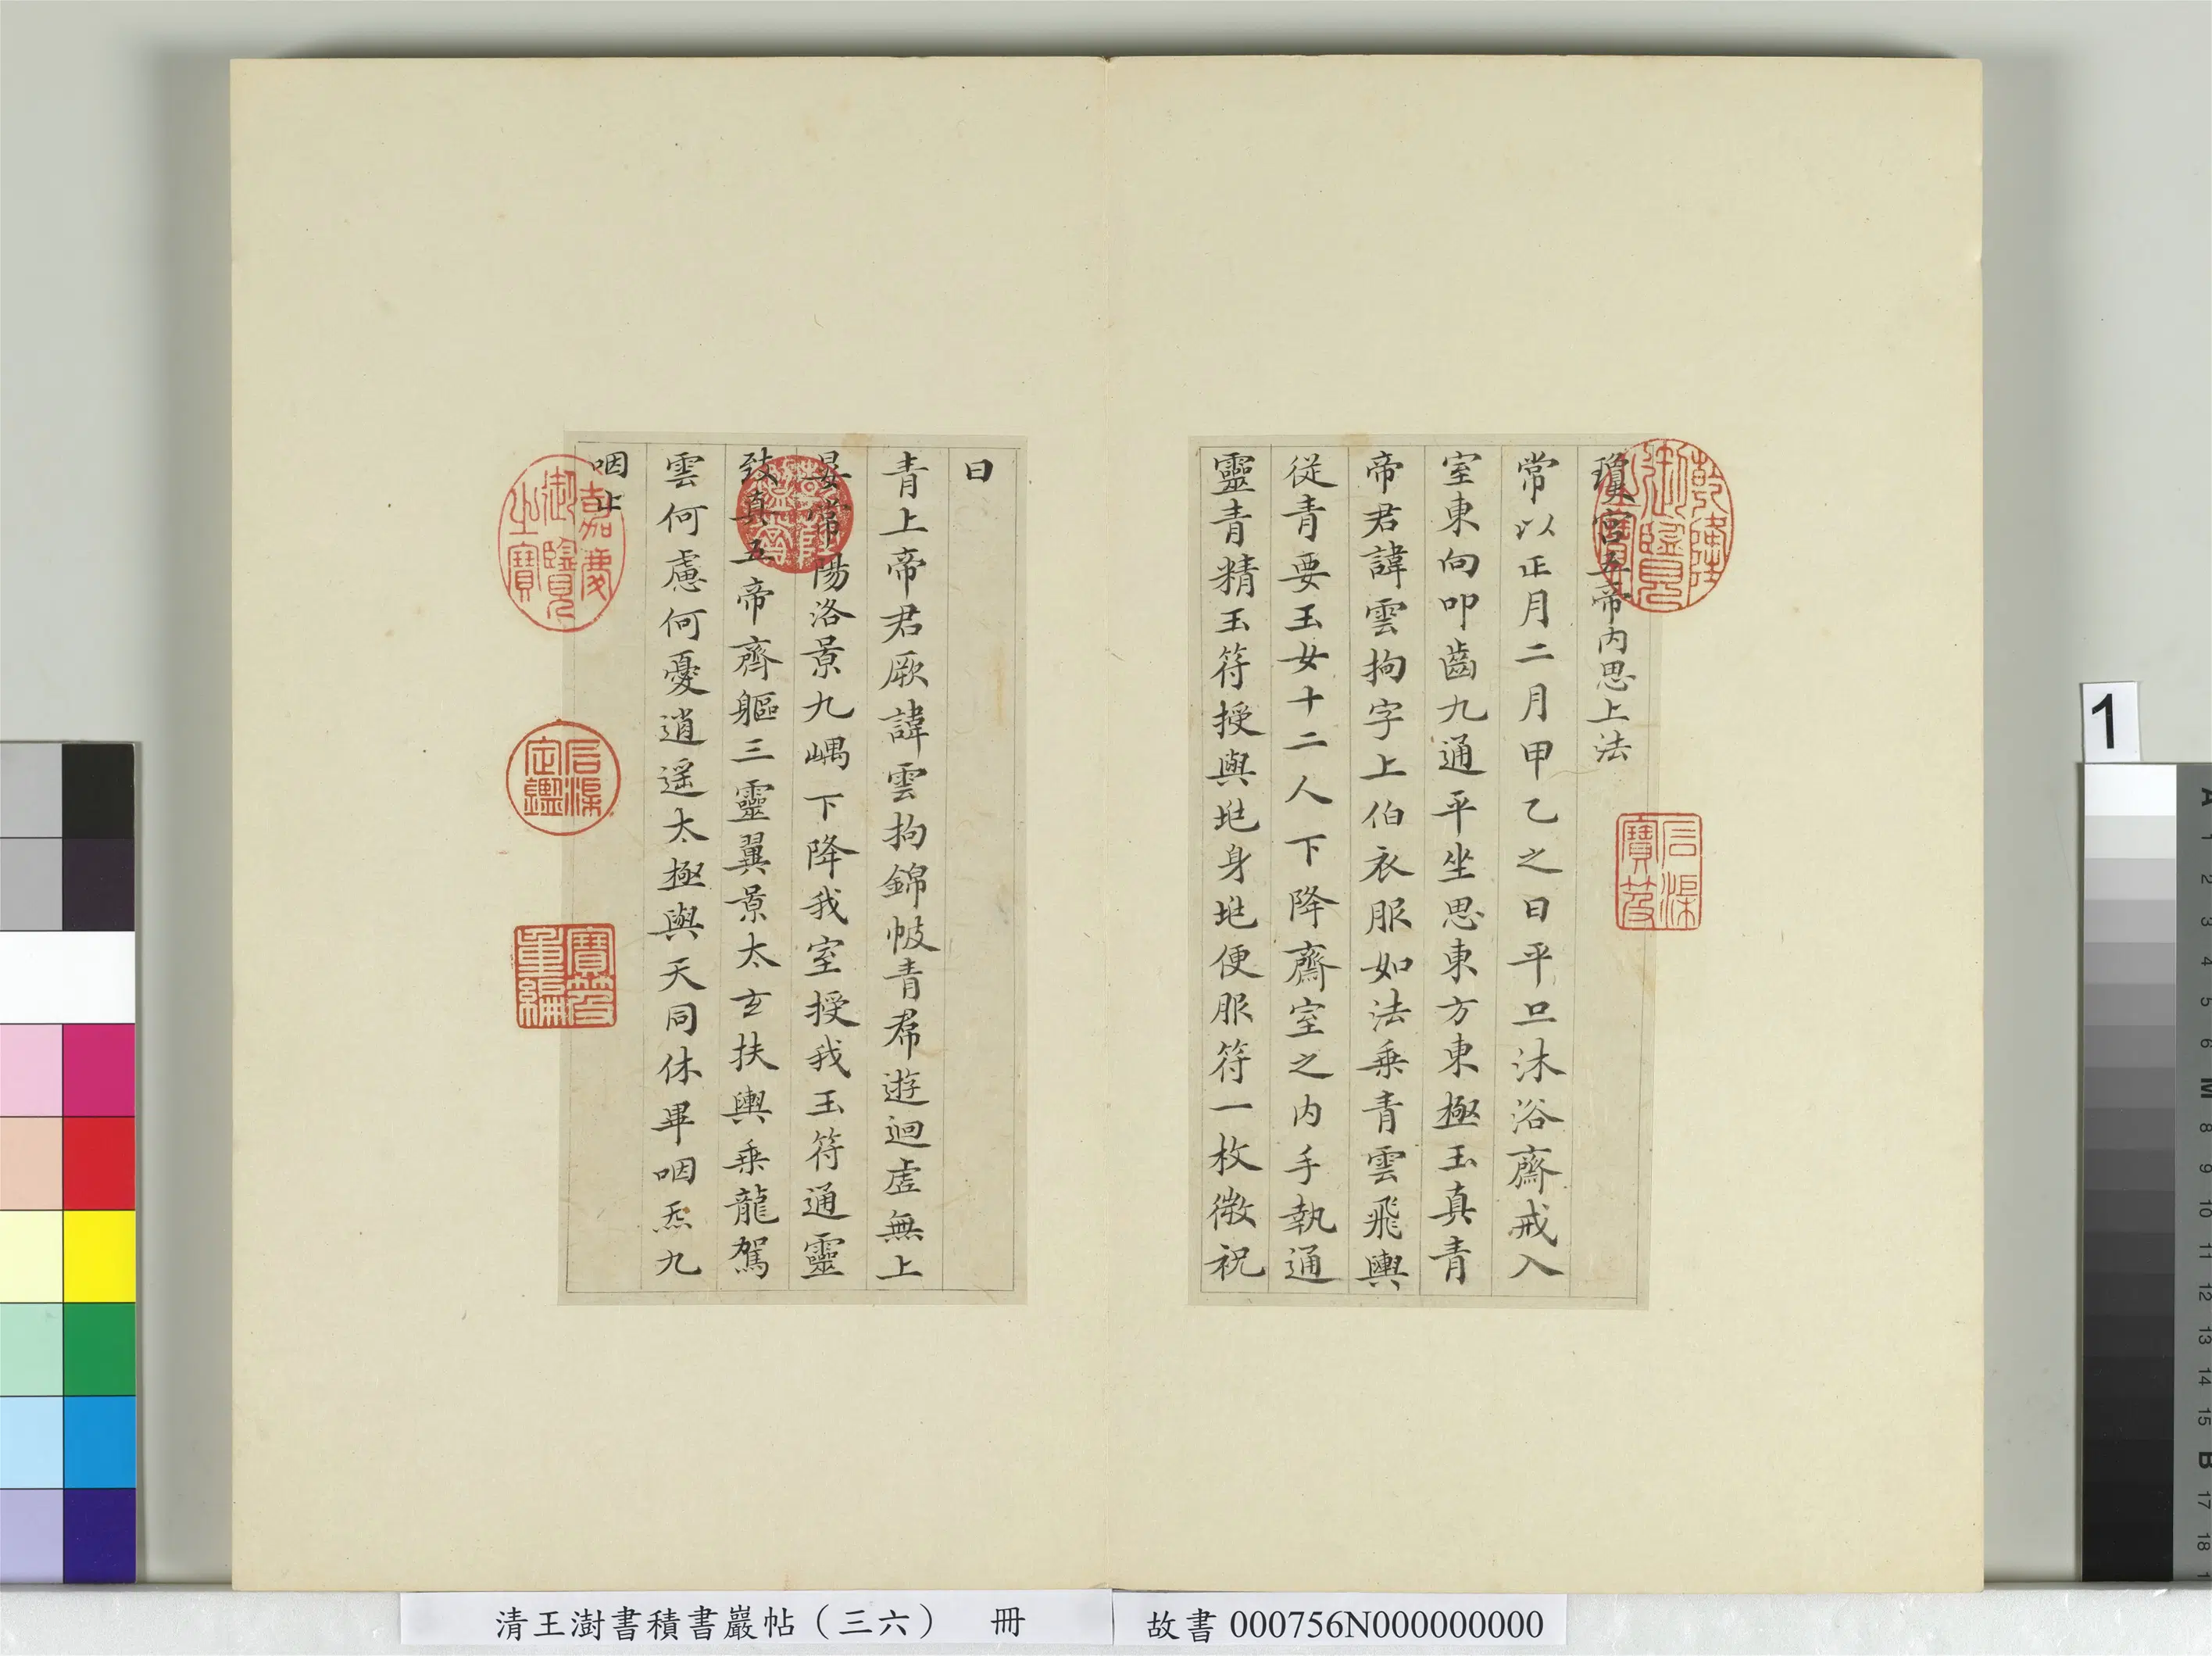 瓊宮五帝内思上法
常以正月二月甲乙之日平旦沐浴齋戒入
室東向叩齒九通平坐思東方東極玉真青
帝君諱雲拘字上伯衣服如法乗青雲飛輿
從青要玉女十二人下降齋室之内手執通
靈青精玉符授與兆身兆便服符一枚微祝
曰
青上帝君厥諱雲拘錦帔青帬遊迴虛無上
晏常陽洛景九嵎下降我室授我玉符通靈
致真五帝齊軀三靈翼景太玄扶輿乗龍駕
雲何慮何憂逍遥太極與天同休畢咽炁九
咽止
乾隆御覽之寶
石渠寶笈
乾隆鑑賞
嘉慶御覽之寶
石渠定鑑
寶笈重編
清王澍書積書巖帖（三六） 冊
故書 000756N000000000
1